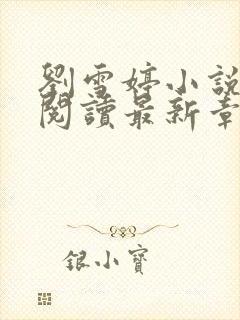 劉雪婷小說
閱讀最新章
銀小寶